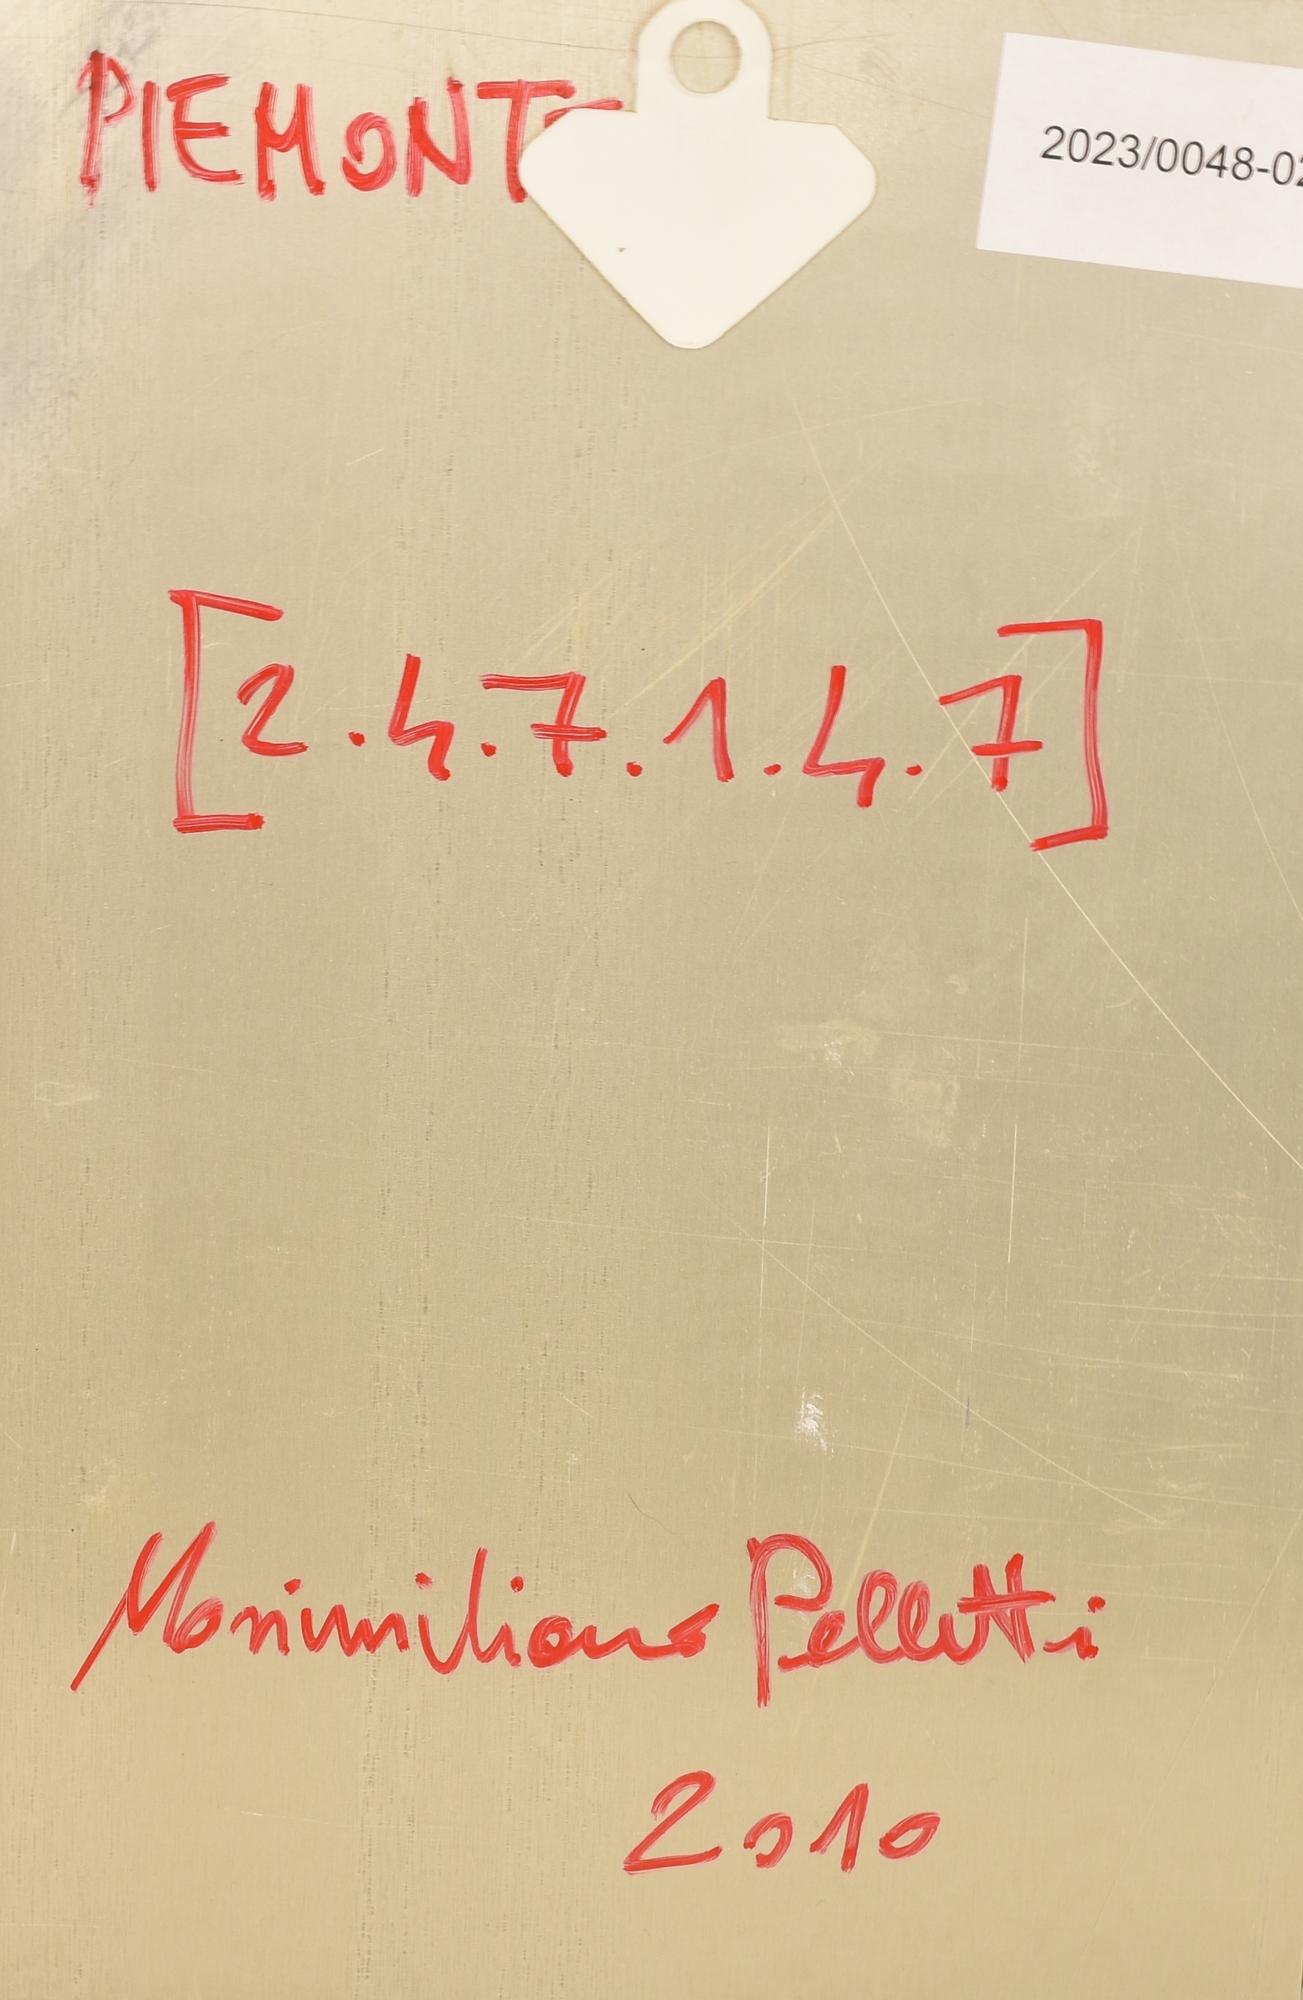 PIEMONT
2023/0048-02
[2.4.7.1.4.7]
Massimiliano Pelletti
2010